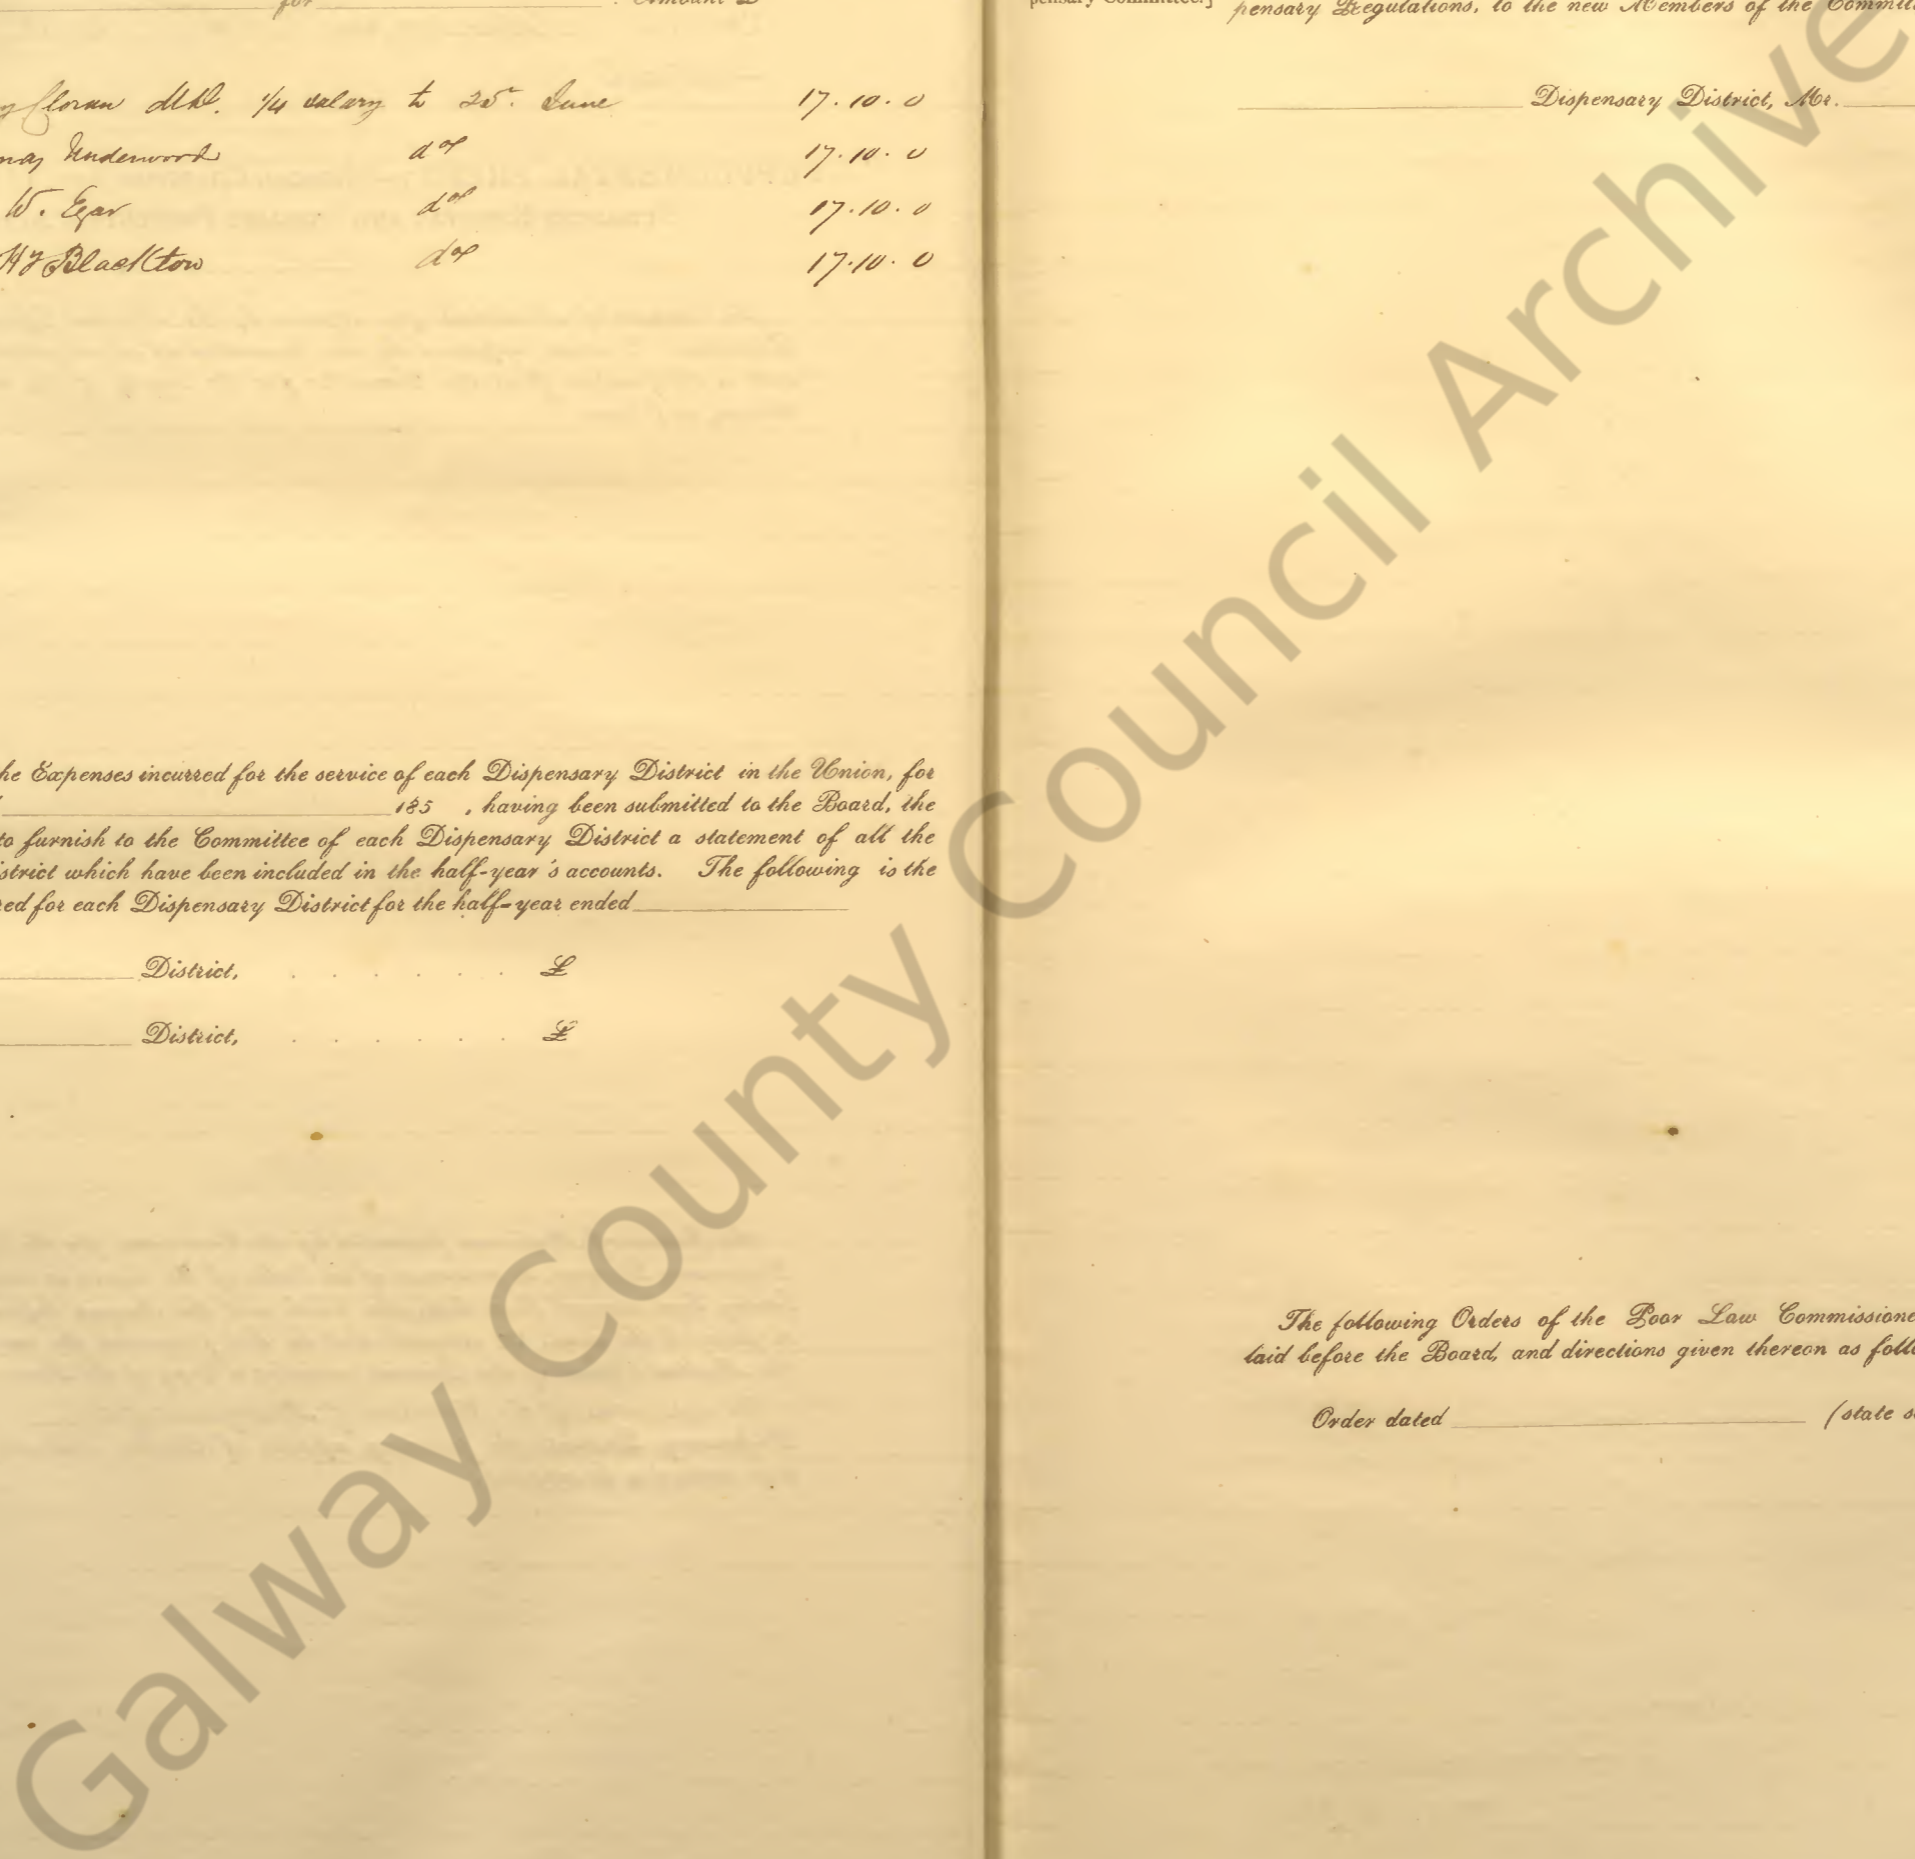 for . Amount £
Cloran M.D. 1/4 salary to 25. June 17.10.0
Underwood do 17.10.0
W. Egar do 17.10.0
Hy Blackton do 17.10.0
he Expenses incurred for the service of each Dispensary District in the Union, for
185 , having been submitted to the Board, the
to furnish to the Committee of each Dispensary District a statement of all the
istrict which have been included in the half-year's accounts. The following is the
red for each Dispensary District for the half-year ended
District, . . . . . . £
District, . . . . . . £
pensary Committee.]
pensary Regulations, to the new Members of the Committ
Dispensary District, Mr.
The following Orders of the Poor Law Commissione
laid before the Board, and directions given thereon as follo
Order dated (state s
Galway County Council Archive